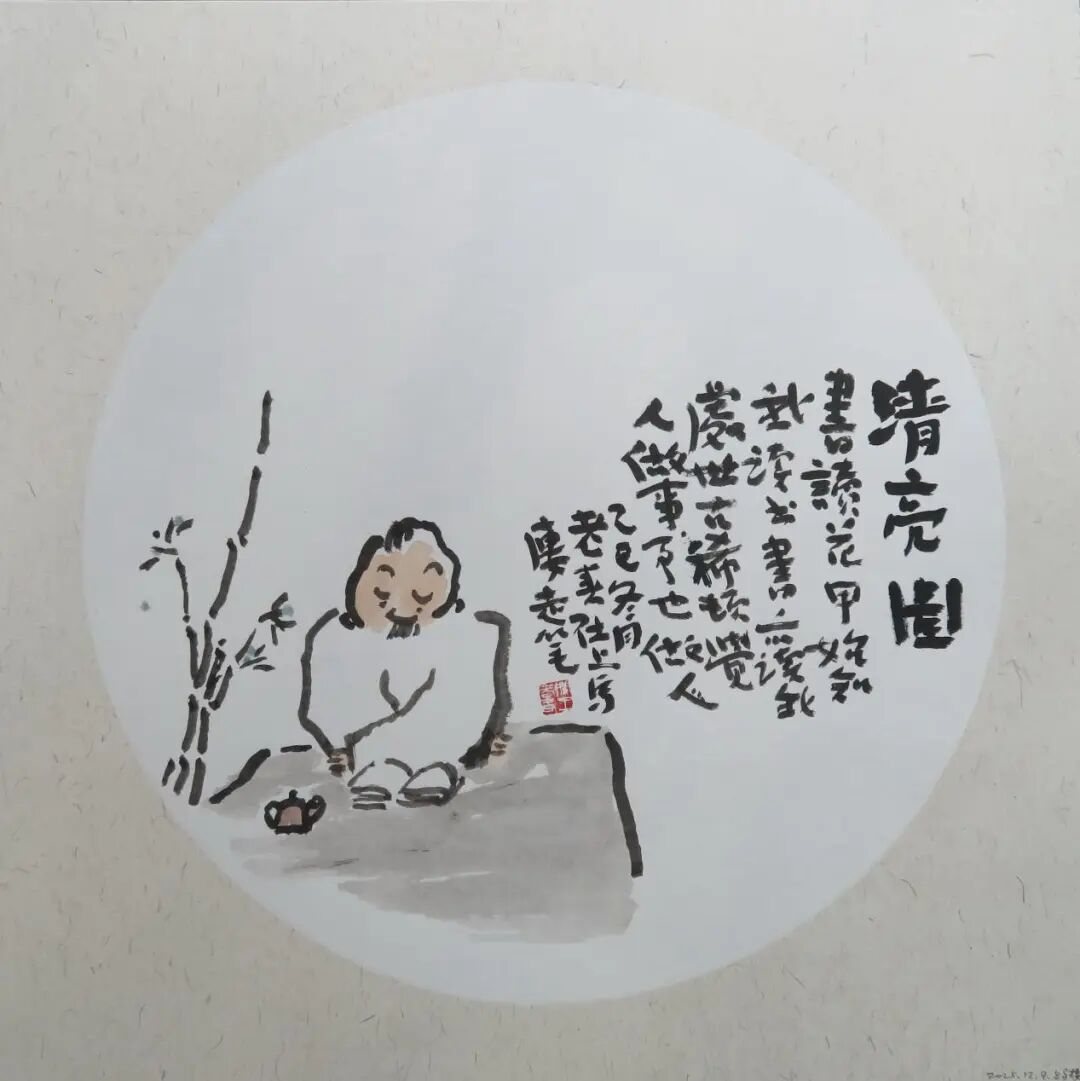 清亮图
書讀花甲始知
我读书書亦读我
處世古稀顿覺
人做事事也做人
乙巳冬月
老春社上写
老笔
2025.12.9.